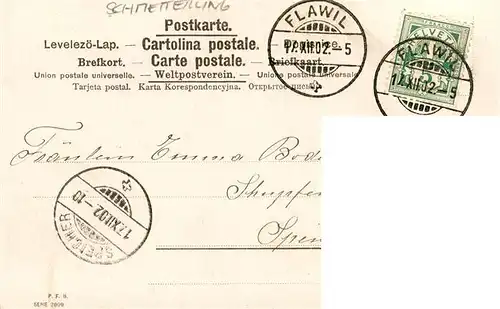 SCHMETTERLING
Postkarte.
Levelezö-Lap. — Cartolina postale. —
Brefkort. — Carte postale. — Briefkaart.
Union postale universelle. — Weltpostverein. — Union postale universale
Tarjeta postal. Karta Korespondencyjna. Открытое
FLAWIL
17.XII.02.-5
FLAWIL
17.XII.02.-5
Fräulein Emma
SPEICHER
17.XII.02.-10
P. F. B.
SERIE 2909